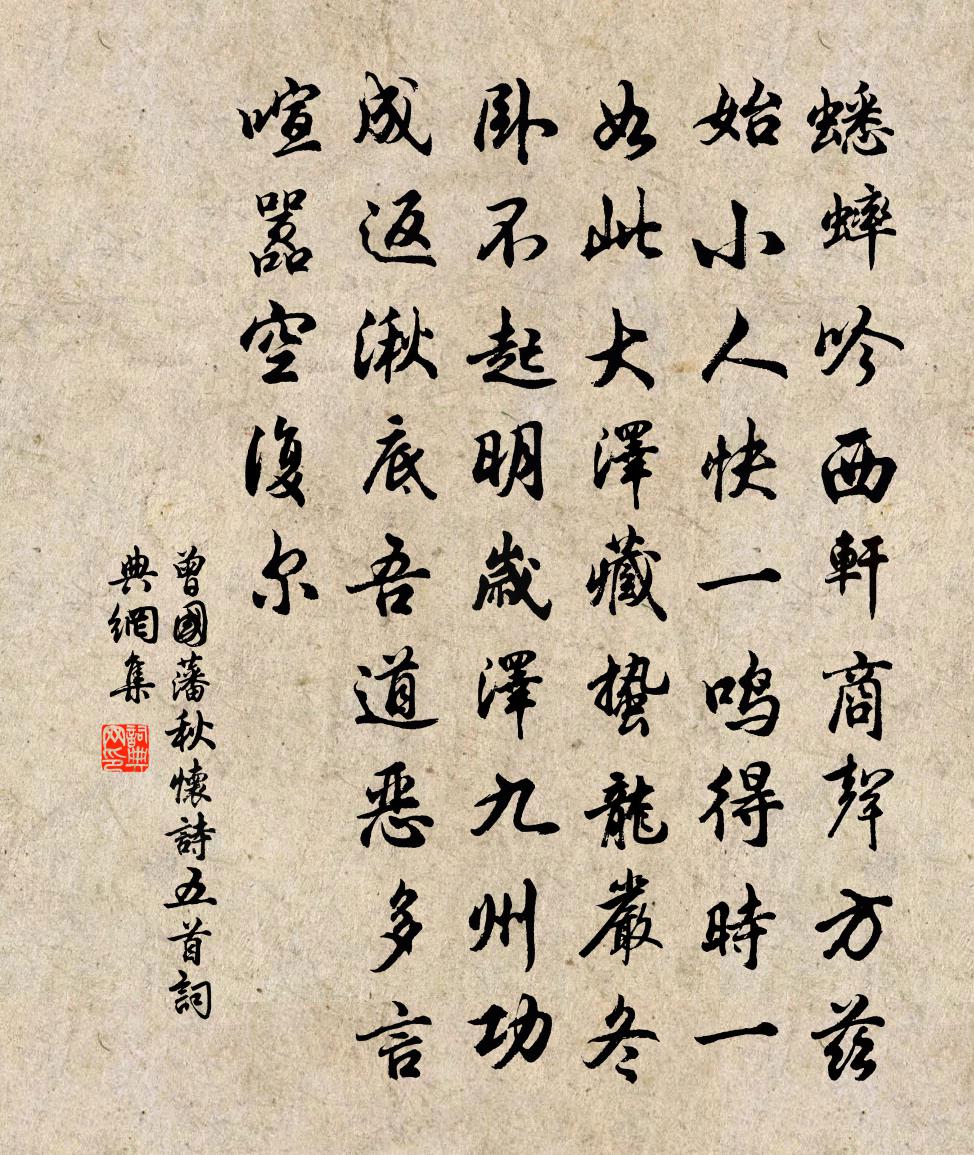 蟋蟀吟西軒商聲方茲
始小人快一鳴得時一
如此大澤藏蟄龍嚴冬
臥不起明歲澤九州功
成返湫底吾道惡多言
喧囂空復尔
曾國藩秋懷詩五首詞
典網集
詞典網印